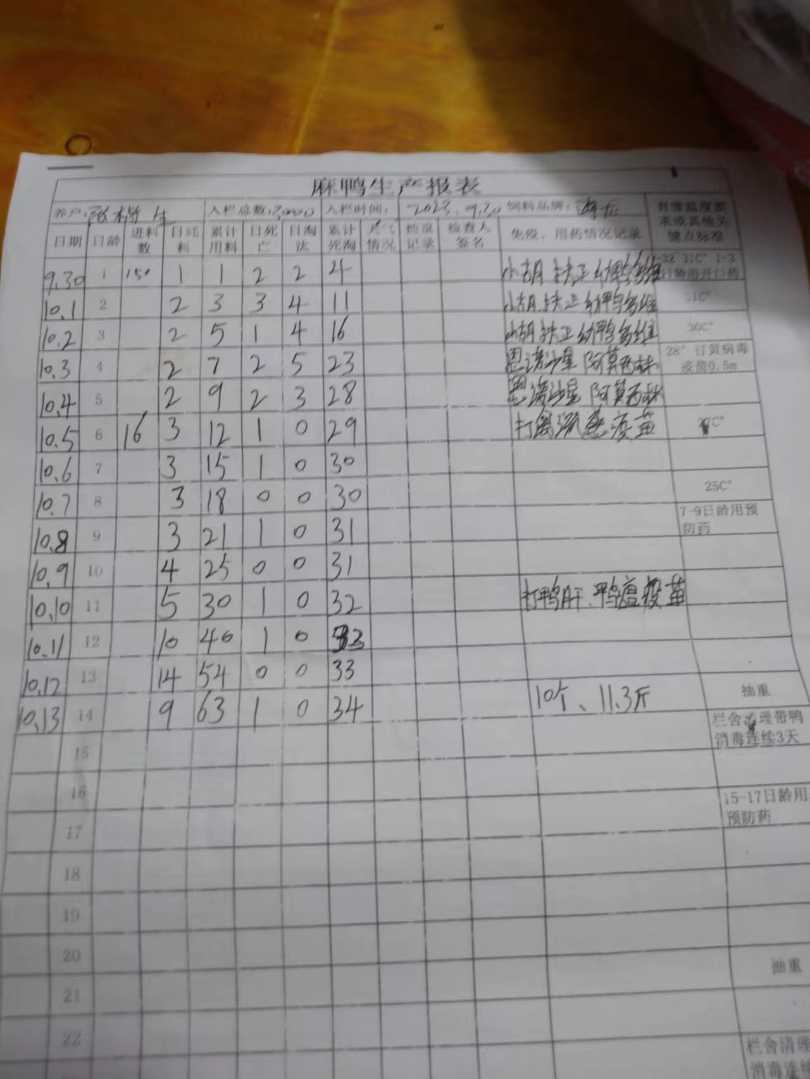 麻鸭生产报表
养户: 入栏总数: 入栏时间: 2023.9.30 饲料品牌: 育雏温度要求或其他关键点标准
日期 日龄 进料数 日耗料 累计用料 日死亡 日淘汰 累计死淘 天气情况 检查记录 检查人签名 免疫、用药情况记录
9.30 1 150 1 1 2 2 4 小胡 扶正 幼鸭多维 1-3日龄用开口药
10.1 2 2 3 3 4 11 小胡.扶正 幼鸭多维 31C°
10.2 3 2 5 1 4 16 小胡 扶正 幼鸭多维 30C°
10.3 4 2 7 2 5 23 恩诺沙星 阿莫西林 28° 订黄病毒疫苗0.5m
10.4 5 2 9 2 3 28 恩诺沙星 阿莫西林
10.5 6 16 3 12 1 0 29 打禽流感疫苗
10.6 7 3 15 1 0 30
10.7 8 3 18 0 0 30 25C°
10.8 9 3 21 1 0 31 7-9日龄用预防药
10.9 10 4 25 0 0 31
10.10 11 5 30 1 0 32 打鸭肝、鸭瘟疫苗
10.11 12 10 40 1 0 33
10.12 13 14 54 0 0 33
10.13 14 9 63 1 0 34 10个、11.3斤 抽重
15 栏舍清理带鸭消毒连续3天
16
17 15-17日龄用预防药
18
19
20
21 抽重
22
栏舍清理
消毒连续